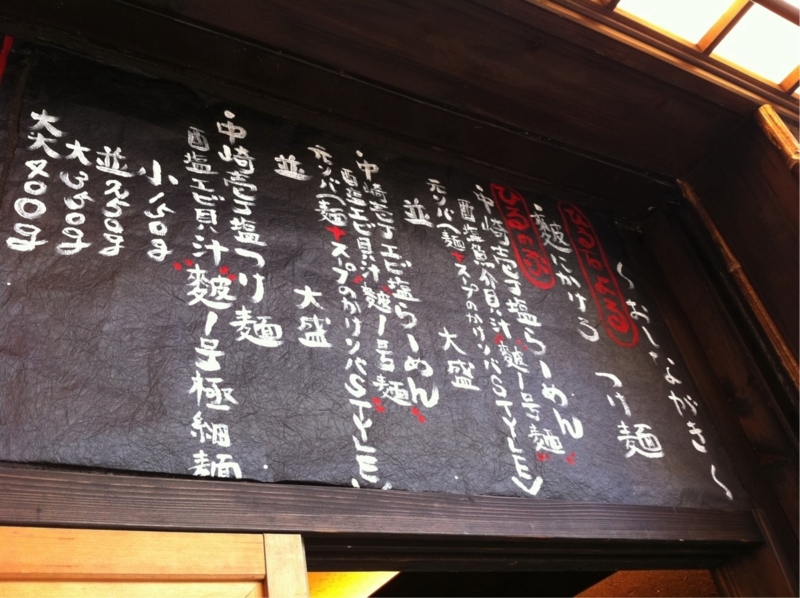 〜おしながき〜
つけ麺
・麺にかける
・中崎壱丁塩らーめん
酉塩魚介貝汁麺1号麺
元ソバ〔麺+スープのかけソバSTYLE〕
並
大盛
・中崎壱丁エビ塩らーめん
酉塩エビ貝汁麺1号麺
元ソバ〔麺+スープのかけソバSTYLE〕
並
大盛
・中崎壱丁塩つけ麺
酉塩エビ貝汁麺1号極細麺
小150g
並250g
大350g
大大400g